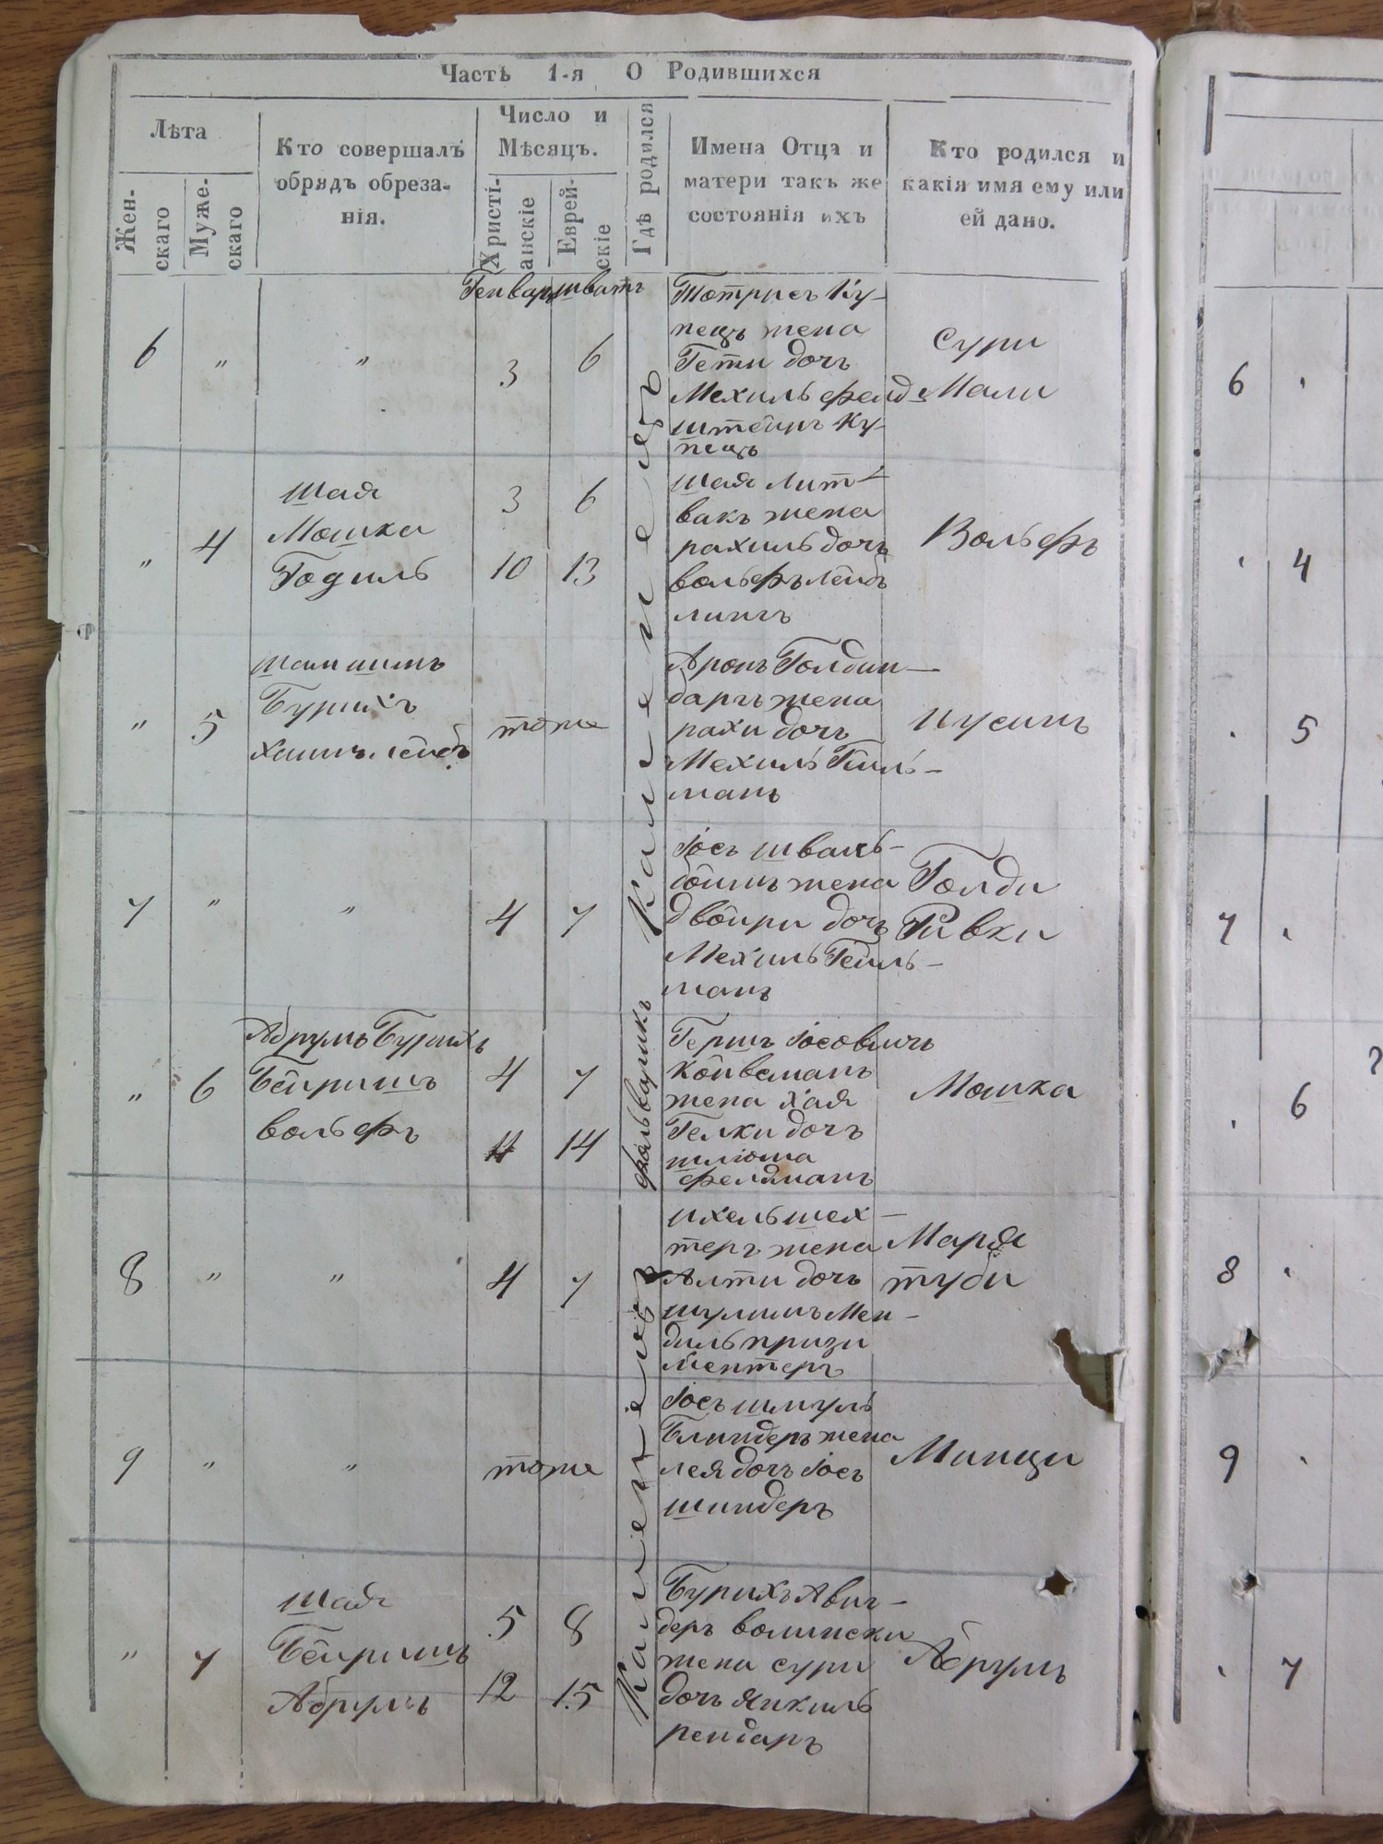 Часть 1-я О Родившихся
Лѣта
Женскаго
Мужескаго
Кто совершалъ
обрядъ обреза-
нія.
Число и
Мѣсяцъ.
Христі-
анскіе
Еврей-
скіе
Гдѣ родился
Имена Отца и
матери такъ же
состоянія ихъ
Кто родился и
какія имя ему или
ей дано.
Генварь шватъ
6 „ „ 3 6
Ку-
пецъ жена
Гети дочь
Мехиль фелд-
штейнъ Ку-
пецъ
Сури
Мали
„ 4
шая
Мошка
Годиль
3 6
10 13
шая лит-
вакъ жена
рахиль дочь
вольфъ лейб
лингъ
Вольфъ
„ 5
шамшинъ
Бурихъ
хаимъ лейбъ
тоже
Аронъ Голдин-
бargъ жена
рахи дочь
Мехиль Гейль-
манъ
Нусинъ
Каменецъ
7 „ „ 4 7
Іосъ шваль-
боимъ жена
двойри дочь
Мехиль Гейль-
манъ
Голди
Ривки
„ 6
Абрумъ Бурихъ
Бейришъ
вольфъ
4 7
11 14
фольваркъ
Гершъ Іосовичъ
Койвманъ
жена хая
Гелки дочь
шлюма
фелдманъ
Мошка
8 „ „ 4 7
ихель шех-
теръ жена
Алти дочь
шулимъ Мен-
диль призи
ментеръ
Маря
туби
9 „ „ тоже
Іосъ шмуль
Блиндеръ жена
лея дочь Іосъ
шиндеръ
Минци
Каменецъ
„ 7
шая
Бейришъ
Абрумъ
5 8
12 15
Бурихъ Авиг-
деръ волински
жена сури
дочь Янкиль
рендаръ
Абрумъ
6
4
5
7
6
8
9
7